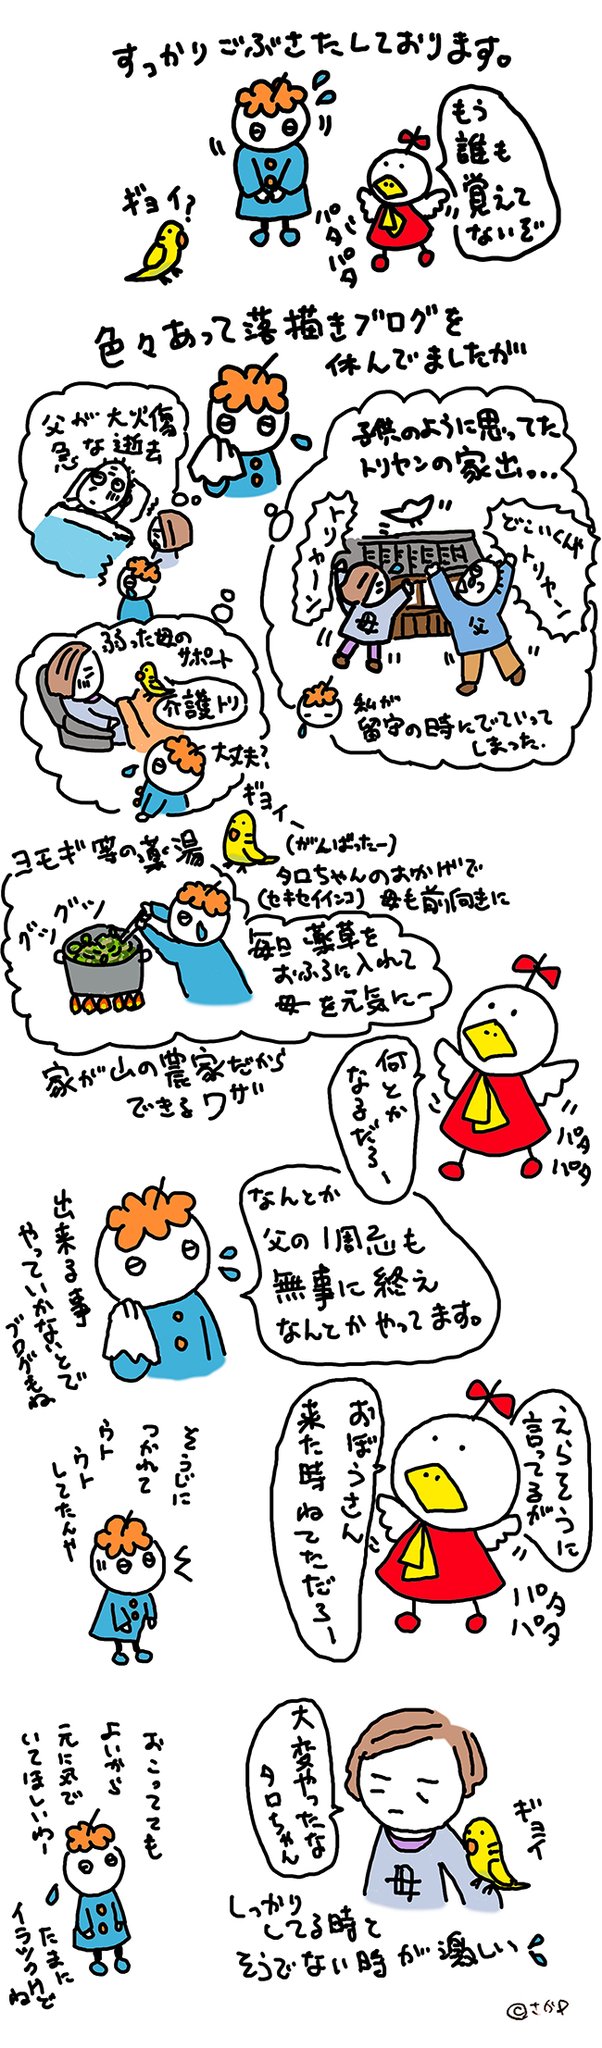 すっかりごぶさたしております。
もう
誰も
覚えて
ないぞ
パタ
パタ
ギョイ?
色々あって落描きブログを
休んでましたが
父が大火傷
急な逝去
子供のように思ってた
トリヤンの家出...
トリヤーン
どこいくんや
トリヤーン
母
父
私が
留守の時にでていって
しまった.
弱った母の
サポート
介護トリ
大丈夫?
ギョイー
(がんばったー)
タロちゃんのおかげで
(セキセイインコ)母も前向きに
ヨモギ等の薬湯
グツグツ
毎日薬草を
おふろに入れて
母を元気にー
家が山の農家だから
できるワザ
何とか
なるだろー
パタ
パタ
なんとか
父の1周忌も
無事に終え
なんとかやってます。
出来る事
やっていかないとで
ブログもね
えらそうに
言ってるが
おぼうさん
来た時ねてただろー
パタ
パタ
そうじに
つかれて
ウト
ウト
してたんや
大変やったな
タロちゃん
ギョイ
母
しっかり
してる時と
そうでない時が激しい
おこってても
よいから
元気で
いてほしいわー
たまに
イラつくけどね
©さかや